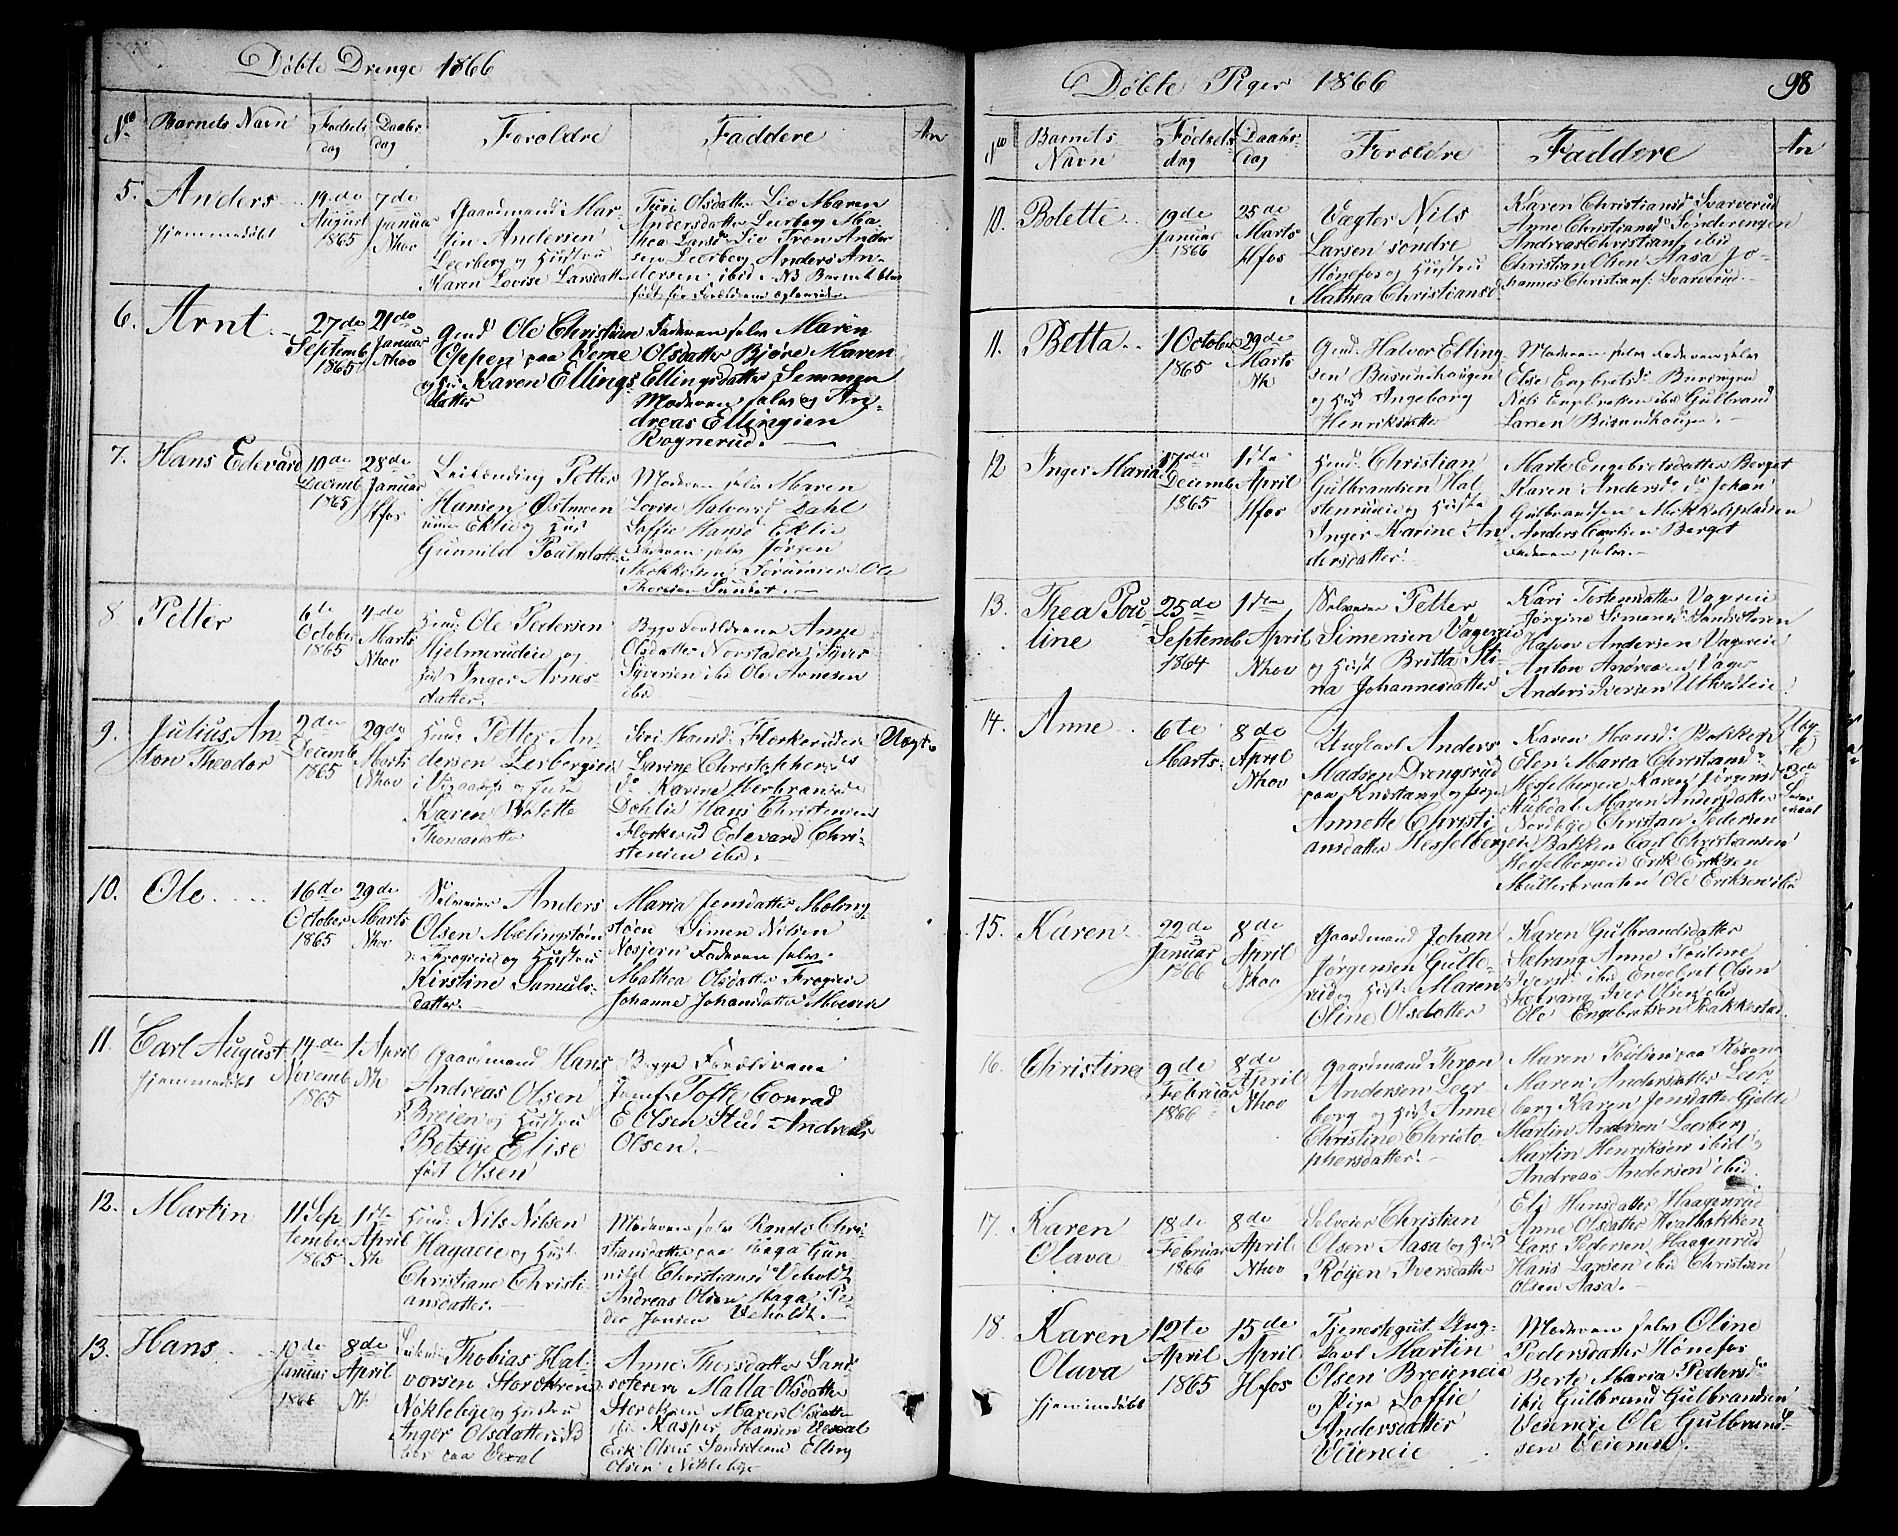 Döbte Drenge 1866
No Barnets Navn Födsels dag Daabs dag Foroldre Faddere An
5. Anders
hjemmedöbt
19de August 1865
7de Januar Nhov
Gaardmand Mar-
tin Andersen
Leerberg og Hustru
Karen Lovise Larsdatter
Turi Olsdatter Lio Maren
Andersdatter Leerberg Ma-
thea Larsd Lio Tron Ander
sen Leerberg Anders An-
dersen ibid. NB Barnet blev
födt för Foreldrenes Egteskab
6. Arnt
27de Septemb 1865
21de Januar Nhov
Gmd Ole Christian
Oppen paa Veme
og Hu Karen Ellings-
datter
Faderen selv Maren
Olsdatter Björe Maren
Ellingsdatter Semmen
Moderen selv og An-
dreas Ellingsen
Rognerud.
7. Hans Edevard
10de Decemb 1865
28de Januar Hfos
Leilænding Petter
Hansen Östmoen
under Eklie og Hust
Gunnild Poulsdatter
Moderen selv Maren
Lovise Halvorsd Dahl
Soffie Hansd Eklie
Faderen selv Jörgen
Mokkelsen Ole
Thoresen
8 Petter
6te October 1865
4de Marts Nhov
Huus Ole Pedersen
Hjelmerudeie og
Hu Inger Arnes-
datter.
Begge Foreldrene Anne
Olsdatter Syver
Syversen ibid Ole Arnesen
ibid
9. Julius An-
ton Theodor
2den Decemb 1865
29de Marts Nhov
Huus Petter An-
dersen Lerbergeie
Karen Bolette
Thomasdatter
Siri Hansd Flaskerudeie
Larine Christophersd
Do Karine Herbrandsd
Dahlie Hans Christensen
Flaskerud Edevard Chri-
stensen ibid.
Uægte
10. Ole
16de October 1865
29de Marts Nhov
Selveier Anders
Olsen Mælingstöen
Frogeie og Hustru
Kirstine Samuls-
datter.
Maria Jensdatter Moling-
stöen Simen Nilsen
Nosjern Faderen selv.
Mathea Olsdatter Frogeie
Johanne Johansdatter Moeen
11. Carl August
hjemmedöbt
14de Novemb 1865
1 April Nh
Gaardmand Hans
Andreas Olsen
Breien og Hustru
Betzye Elise
födt Olsen
Begge Foreldrene
Jomf Tofte Conrad
E Olsen Hud Andreas
Olsen.
12. Martin
11 Sep tember 1865
1ste April Nh
Huus Nils Nilsen
Hagaeie og Hust
Christiane Christi-
ansdatter.
Moderen selv Randi Chri-
stiansdatter paa Haga Gun-
nild Christiansd Veholdt
Andreas Olsen Haga Pe-
der Jonsen Veholdt.
13. Hans
10de Januar 1866
8de April Nh
Thobias Hal-
vorsen Storökren
Nöklebye og Hustru
Anger Olsdatter
boer paa Vexal
Anne Thorsdatter Sand-
soteren Malla Olsdatter
Storökren Maren Olsdatter
ibid Kasper Hansen Vexal
Erik Olsen Sandsoteren Elling
Olsen Nöklebye
Döbte Piger 1866 98
No Barnets Navn Födsels dag Daabs dag Foroldre Faddere An
10. Bolette
19de Januar 1866
25de Marts Hfos
Vægter Nils
Larsen söndre
Hönefos og Hustru
Mathea Christiansd
Karen Christiansd Svarverud
Anne Christiansd Sönderengen
Andreas Christians ibid
Christian Olsen Aasa Jo-
hannes Christians. Svarverud.
11. Betta
1 October 1865
29de Marts Nh
Gmd. Halvor Elling-
sen Busundhaugen
og Hust Ingeborg
Henriksdatter
Moderen selv Faderen selv
Elise Engbretsd. Buringrud
Nils Engbretsen ibid Gulbrand
Larsen Busundhaugen.
12 Inger Maria
17de Decemb 1865
1ste April Hfos
Huus Christian
Gulbrandsen Hal
stenrudeie og Hustru
Inger Karine An
dersdatter.
Marte Engebretsdatter Berget
Karen Andersd ibd Johan
Gulbrandsen Mokkelspladsen
Anders Carlsen Berget
Faderen selv.
13. Thea Pou
line
25de Septemb 1864
1ste April Nhov
Selveier Petter
Simensen Vagereie
og Hust Britta Sti-
na Johannesdatter
Kari Tostensdatter Vagreie
Jörgine Simensd Sandsoteren
Halvor Andersen Vagereie
Anton Andreasen Vager
Anders Iversen Uthvedteie.
14. Anne
6te Marts
8de April Nhov
Ungkarl Anders
Madsen Drengsrud
paa Knæstang og Pige
Annette Christi
ansdatter Hesselbergeie
Karen Hansd. Blokkesp
Elen Maria Christiansd
Hesselbergeie Karen Jörgensd
Stubdal Maren Andersdatter
Nordbye Christian Pedersen
Bakken Carl Christiansen
Hesselbergeie Erik Eriksen
Mullerbraaten Ole Eriksen ibd
15. Karen
22de Januar 1866
8de April Nhov
Gaardmand Johan
Jörgensen Gulle-
rud og Hust. Maren
Oline Olsdatter
Karen Gulbrandsdatter
Sætrang Anne Pouline
Iversd ibid Engebret Olsen
Sætrang Iver Olsen ibid
Ole Engebretsen Bakkestad
16. Christine
9de Februar 1866
8de April Nhov
Gaardmand Thron
Andersen Leer
berg og Hust Anne
Christine Christo
phersdatter.
Maren Poulsen paa
Maren Andersdatter Leer-
berg Karen Jonsdatter Gjelde
Martin Andersen Leerberg
Martin Henriksen ibid
Andreas Andersen ibid
17. Karen
Olava
18de Februar 1866
8de April Nhov
Selveier Christian
Olsen Aasa og Hust
Röyen Iversdatter
Eli Hansdatter Haagenrud
Anne Olsdatter Hvalbakken
Lars Pedersen Haagenrud
Hans Larsen ibid Christian
Olsen Aasa.
18. Karen
Olava
hjemmedöbt
12te April 1865
15de April Hfos
Tjenestegut Ung-
karl Martin
Olsen Breieneie
og Pige Soffie
Andersdatter
Veieneie
Moderen selv Oline
Pedersdatter Hönefos
Berte Maria Pedersd
ibid Gulbrand Gulbrandsen
Veieneie Ole Gulbrand-
sen Veieneie.